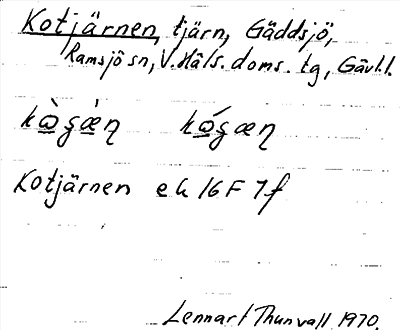 Kotjärnen, tjärn, Gäddsjö,
Ramsjö sn, V. Häls. doms. tg, Gävl. l.
Kotjärnen ek 16 F 7 f
Lennart Thunvall 1970.